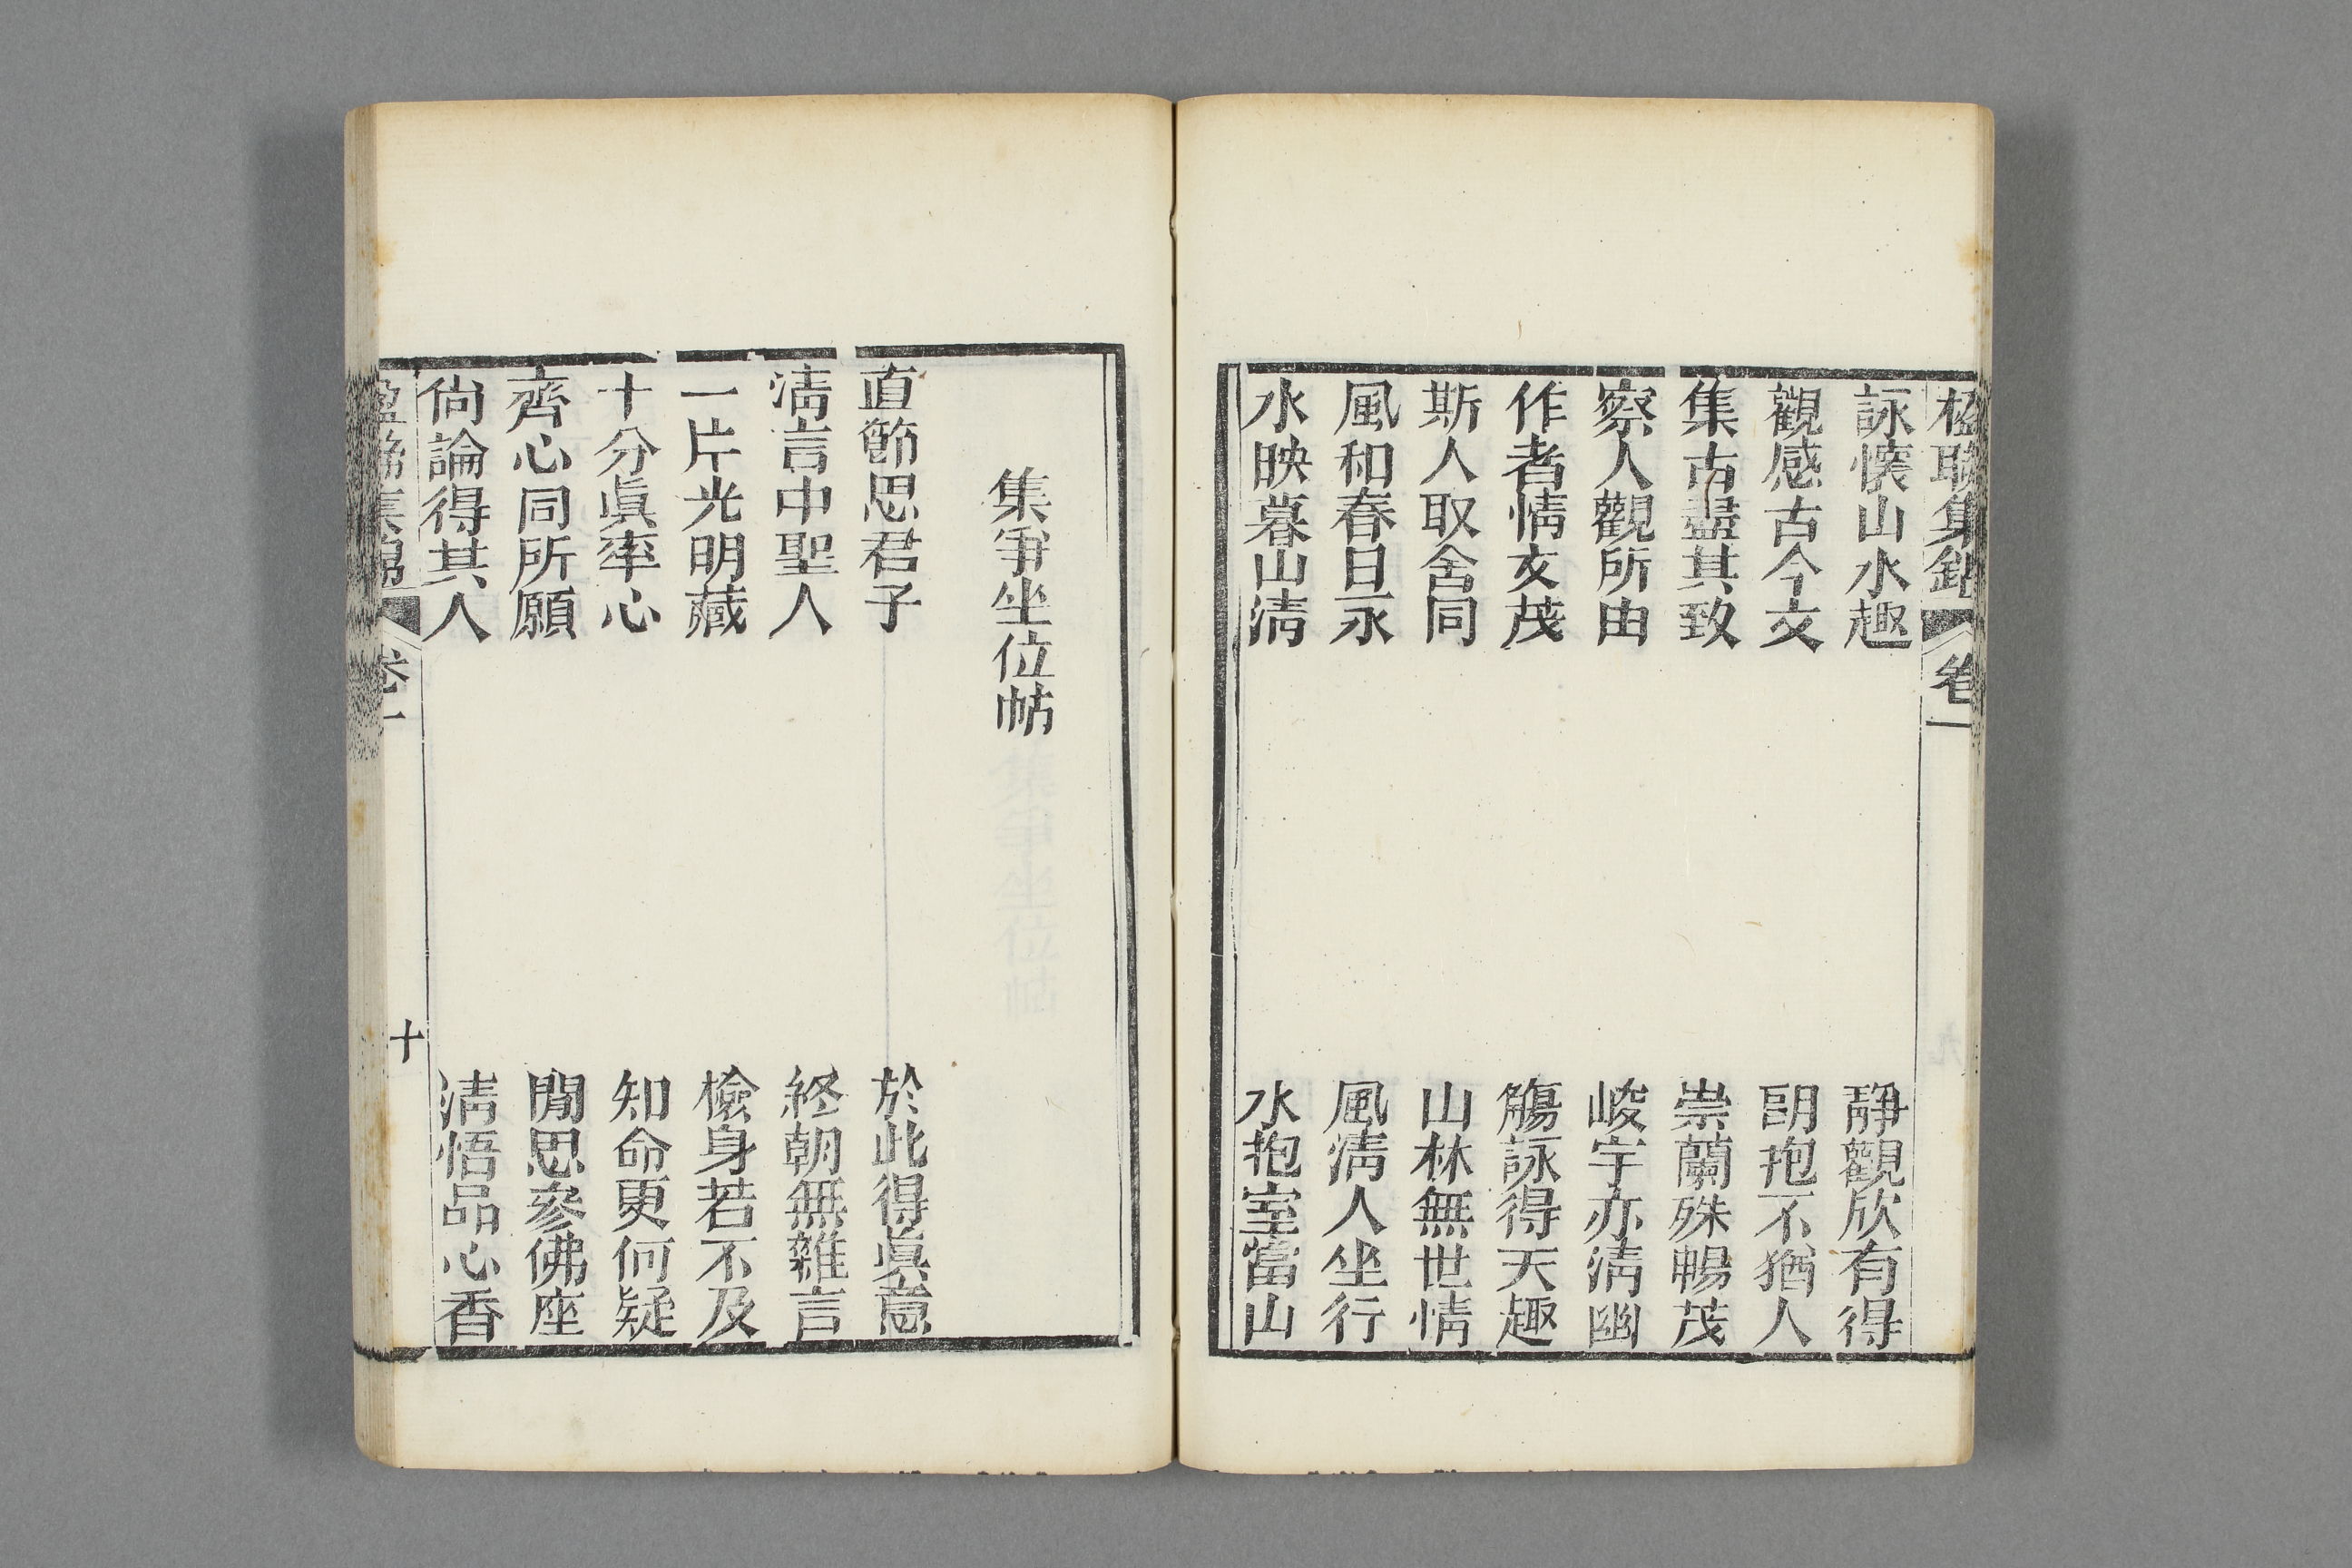 楹聯集錦 卷一
詠懷山水趣 靜觀欣有得
觀感古今文 朗抱不猶人
集古盡其致 崇蘭殊暢茂
察人觀所由 峻宇亦清幽
作者情文茂 觴詠得天趣
斯人取舍同 山林無世情
風和春日永 風清人坐行
水映暮山清 水抱室當山
集爭坐位帖
直節思君子 於此得眞意
清言中聖人 終朝無雜言
一片光明藏 檢身若不及
十分眞率心 知命更何疑
齊心同所願 閒思參佛座
尙論得其人 清悟品心香
卷一 十